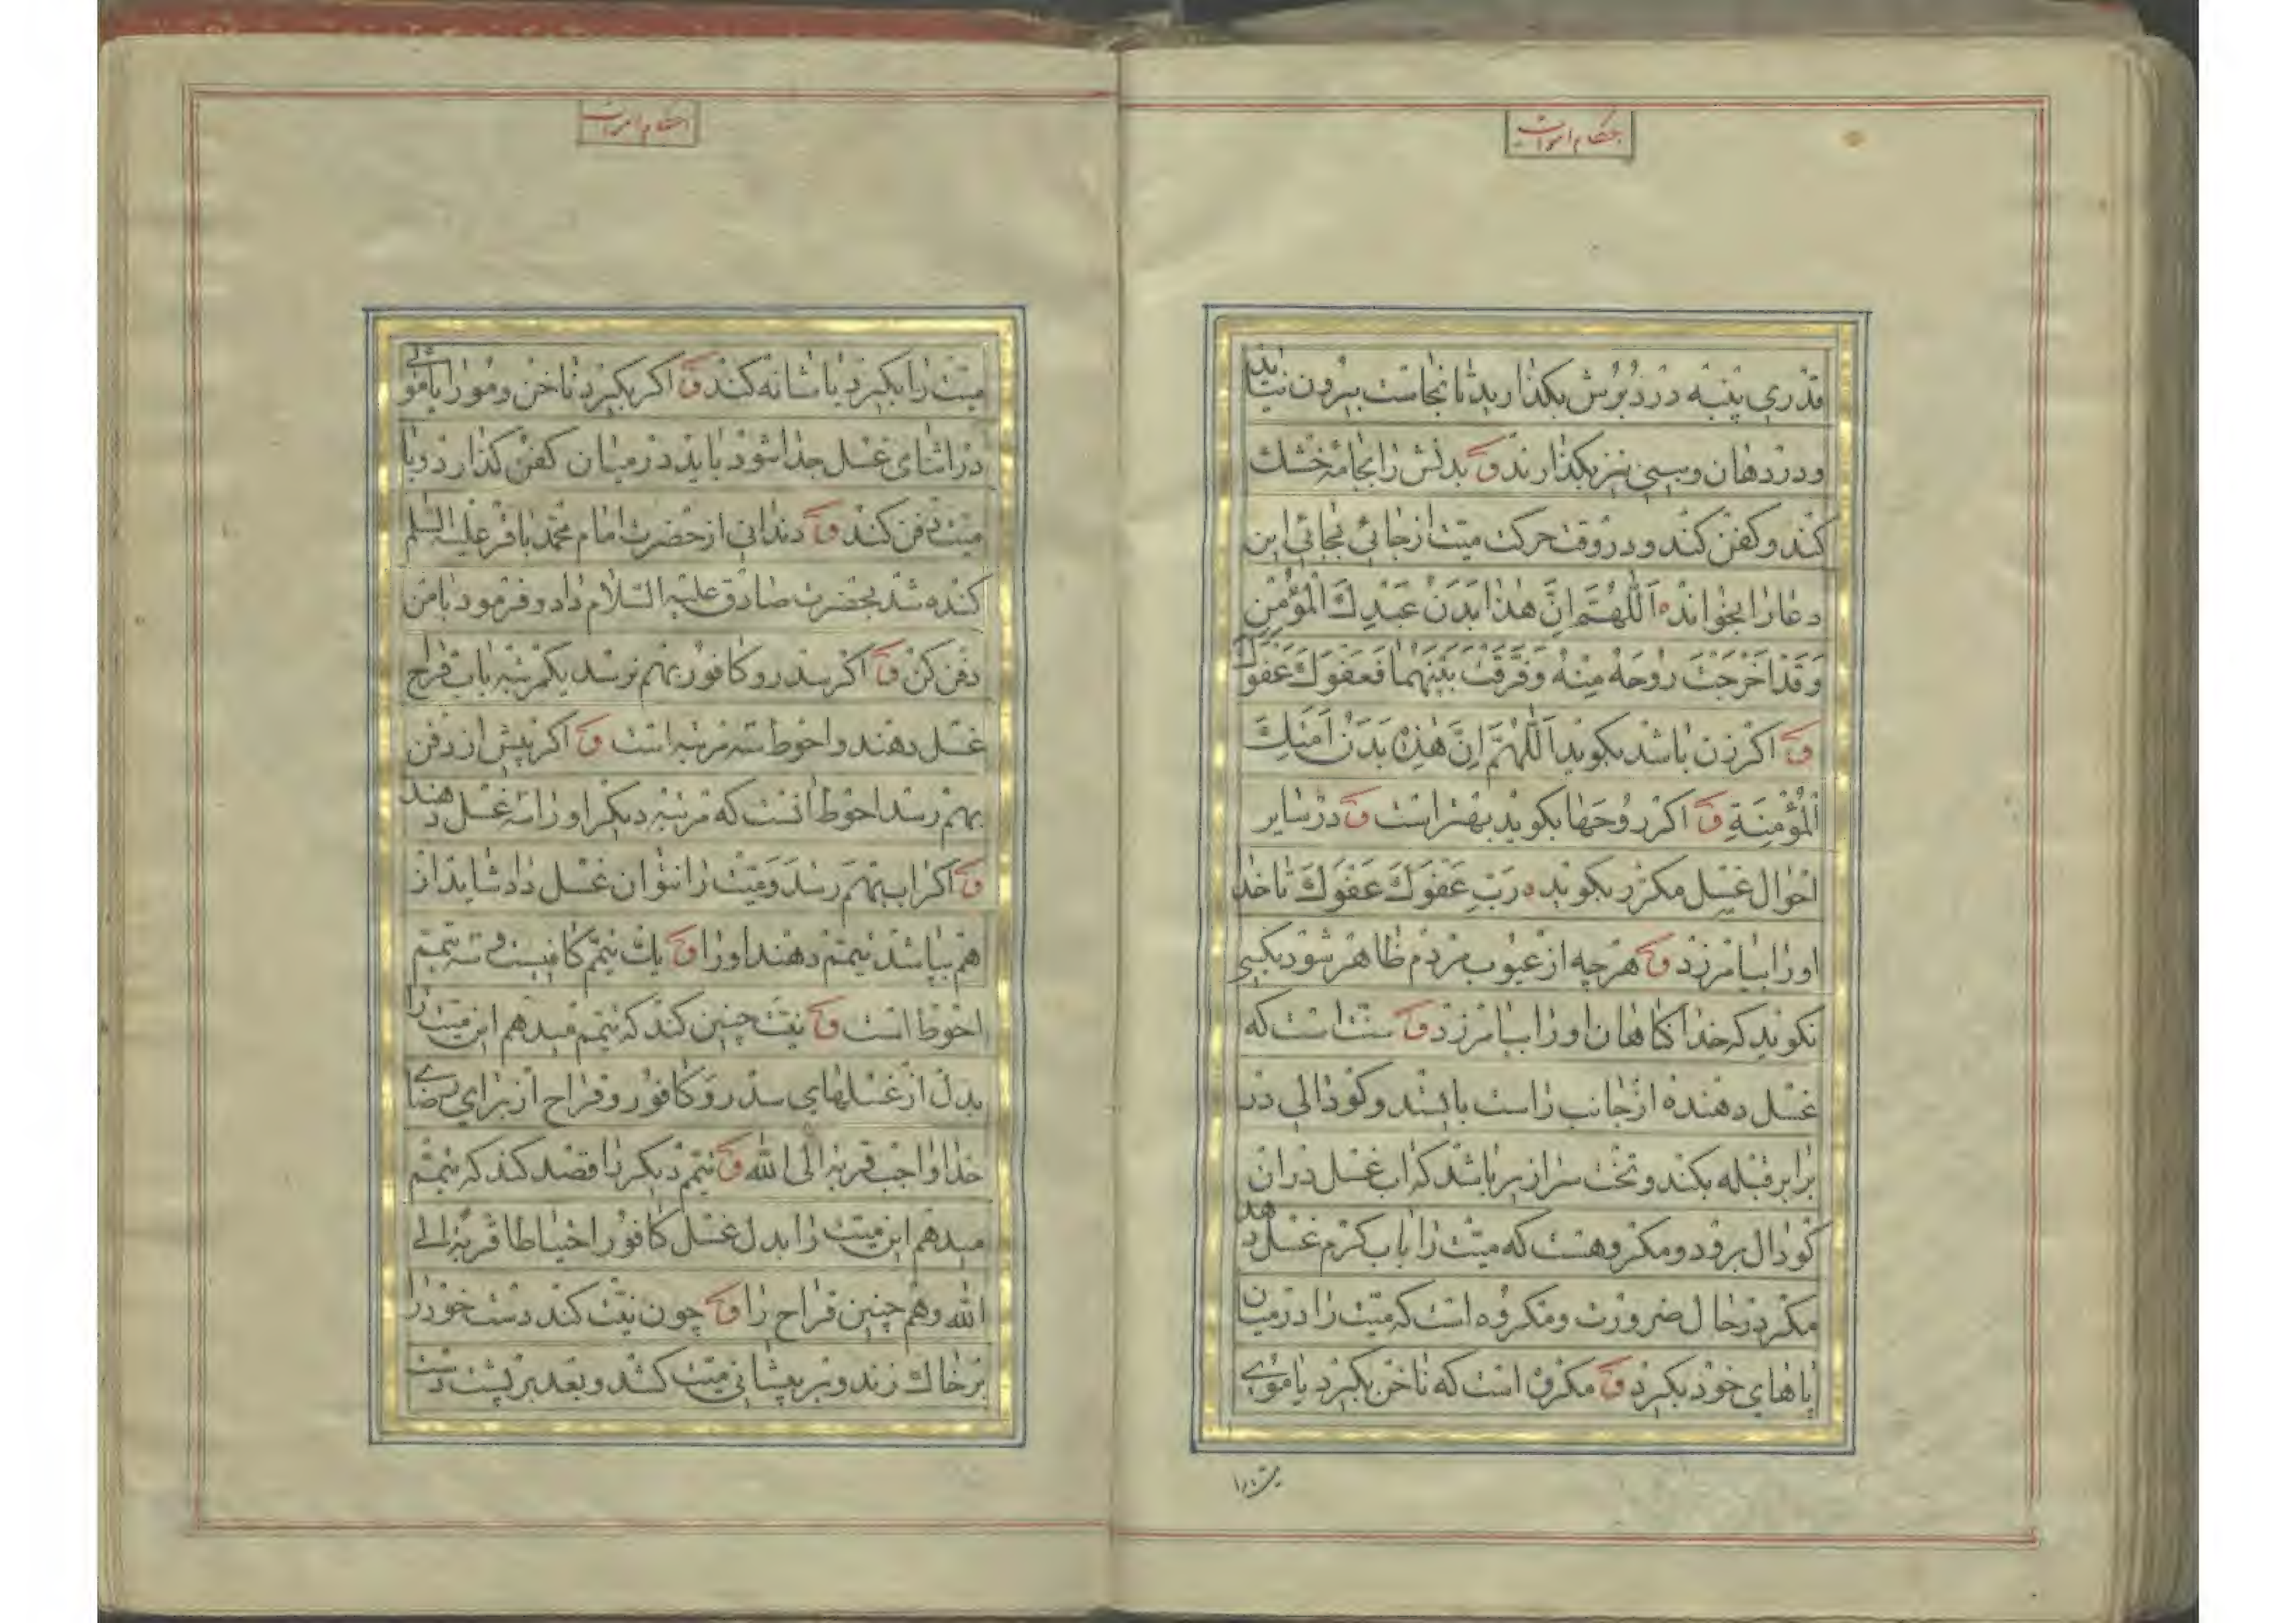 احکام اموات
قدری پنبه در دبرش بکذارید تا نجاست بیرون نیاید
و در دهان و بینی نیز بکذارند ق بدنش را بجامهٔ خشک
کنند و کفن کنند و در وقت حرکت میّت از جائی بجائی این
دعا را بخوانده اَللّٰهُمَّ اِنَّ هٰذا بَدَنُ عَبْدِكَ الْمُؤْمِنِ
وَقَدْ اَخْرَجْتَ رُوحَهُ مِنْهُ وَفَرَّقْتَ بَیْنَهُما فَعَفْوَكَ عَفْوَكَ
ق اکر زن باشد بکوید اَللّٰهُمَّ اِنَّ هٰذِهِ بَدَنُ اَمَتِكَ
الْمُؤْمِنَةِ ق اکر رُوحَها بکوید بهتر است ق در سایر
احوال غسل مکرّر بکویده رَبِّ عَفْوَكَ عَفْوَكَ تا خدا
او را بیامرزد ق هر چه از عیوب مردم ظاهر شود بکسی
نکوید که خدا کناهان او را بیامرزد ق سنّت است که
غسل دهنده از جانب راست بایستد و کودالی در
برابر قبله بکند و تخت سرازیر باشد که اب غسل در ان
کودال برود و مکروهست که میّت را باب کرم غسل دهد
مکر در حال ضرورت و مکروه است که میّت را در میان
پاهای خود بکیرد ق مکروه است که ناخن بکیرد یا موی
میّت را
احکام اموات
میّت را بکیرد یا شانه کند ق اکر بکیرد ناخن و مو را یا موئی
در اثنای غسل جدا شود باید در میان کفن کذارد و با
میّت دفن کند ق دندانی از حضرت امام محمّد باقر علیه السلم
کنده شد بحضرت صادق علیه السّلام داد و فرمود با من
دفن کن ق اکر سدر و کافور بهم نرسد یکمرتبه باب قراح
غسل دهند و احوط سه مرتبه است ق اکر پیش از دفن
بهم رسد احوط انست که مرتبه دیکر او را سه غسل دهند
ق اکر اب بهم رسد و میّت را نتوان غسل داد شاید از
هم بپاشد تیمّم دهند او را ق یك تیمّم کافیست و سه تیمّم
احوط است ق نیّت چنین کند که تیمّم میدهم این میّت را
بدل از غسلهای سدر و کافور و قراح از برای رضای
خدا واجب قربة الی الله ق تیمّم دیکر را قصد کند که تیمّم
میدهم این میّت را بدل غسل کافور احتیاطا قربة الی
الله و هم چنین قراح را ق چون نیّت کند دست خود را
بر خاك زند و بر پیشانی میّت کشد و بعد بر پشت دست